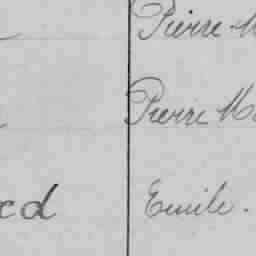 Pierre M
Pierre Ma
cd Emile.